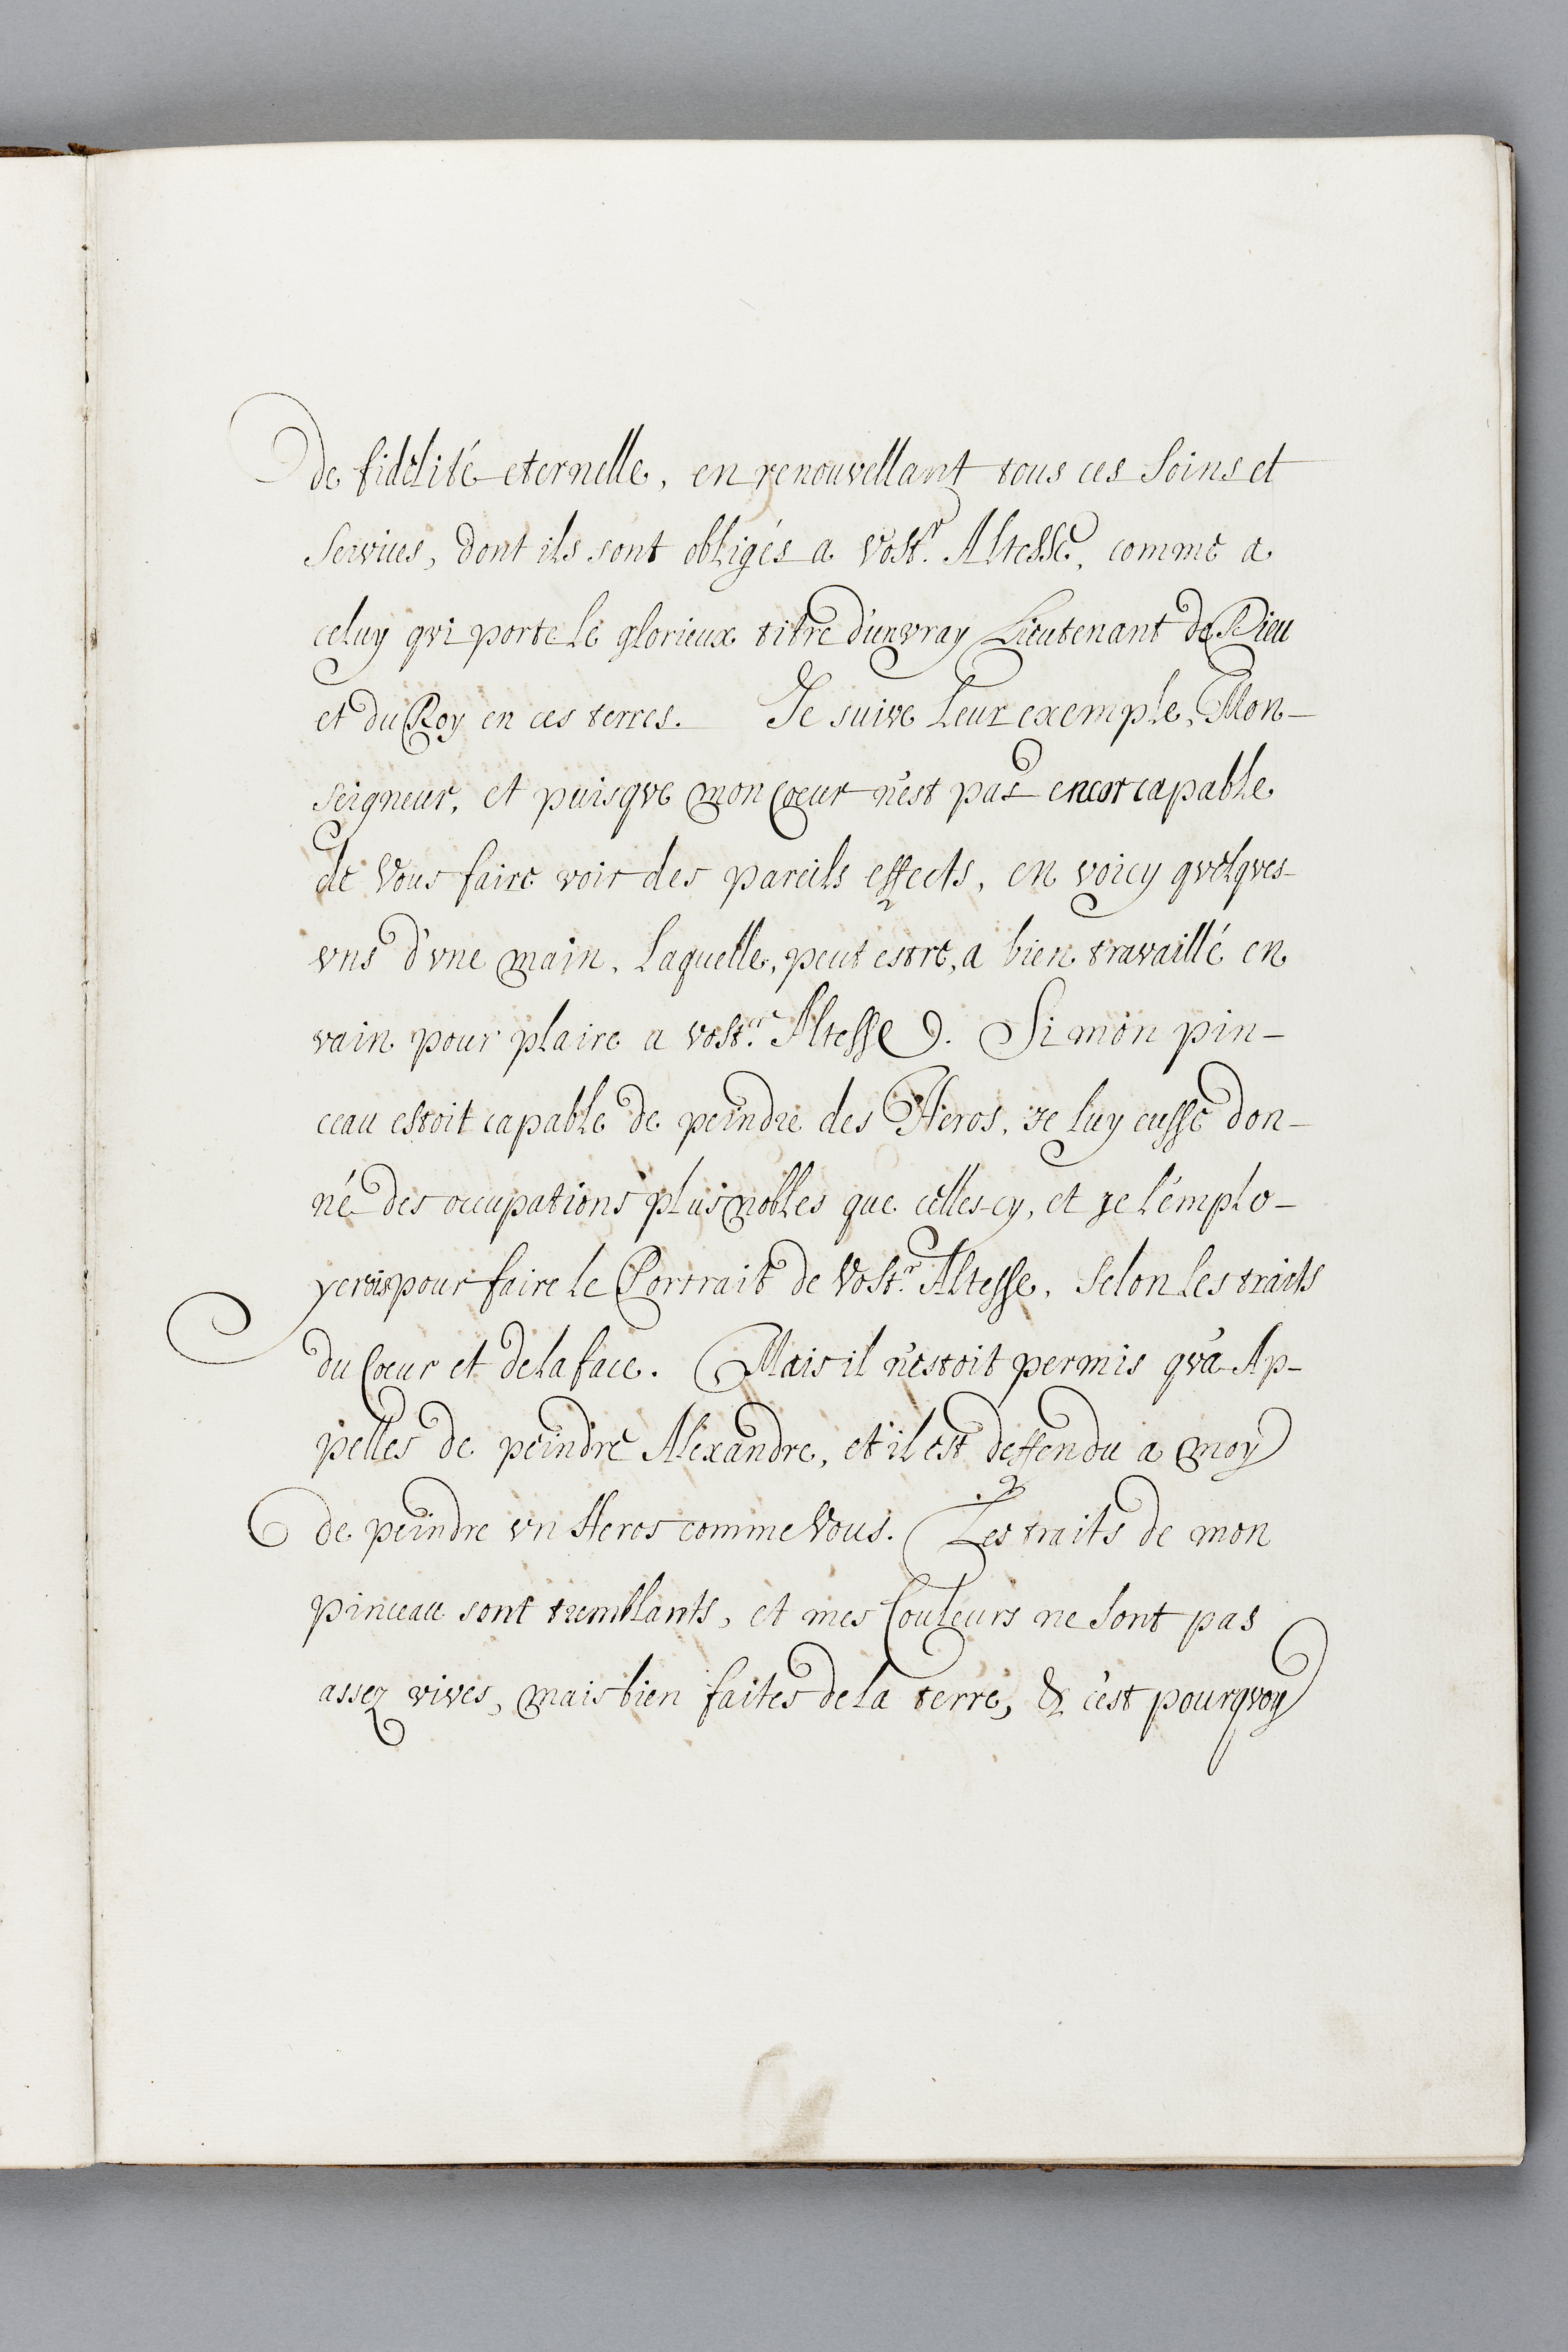 de fidélité eternelle, en renouvellant tous ces Soins et
Services, dont ils sont obligés a Vost.r Altesse, comme a
celuy qvi porte le glorieux titre d'un vray Lieutenant de Dieu
et du Roy en ces terres. Je suive leur exemple, Mon-
seigneur, et puisqve mon Coeur n'est pas encor capable
de Vous faire voir des pareils effects, en voicy qvelqves-
vns d'vne main, laquelle, peut estre, a bien travaillé en
vain pour plaire a vost.re Altesse. Si mon pin-
ceau estoit capable de peindre des Heros, je luy eusse don-
né des occupations plus nobles que celles-cy, et je l'emplo-
yerois pour faire le Portrait de Vost.r Altesse, selon les traits
du Coeur et de la face. Mais il n'estoit permis qv'a Ap-
pelles de peindre Alexandre, et il est deffendu a moy
de peindre vn Heros comme Vous. Les traits de mon
pinceau sont tremblants, et mes Couleurs ne sont pas
assez vives, mais bien faites de la terre, & c'est pourqvoy